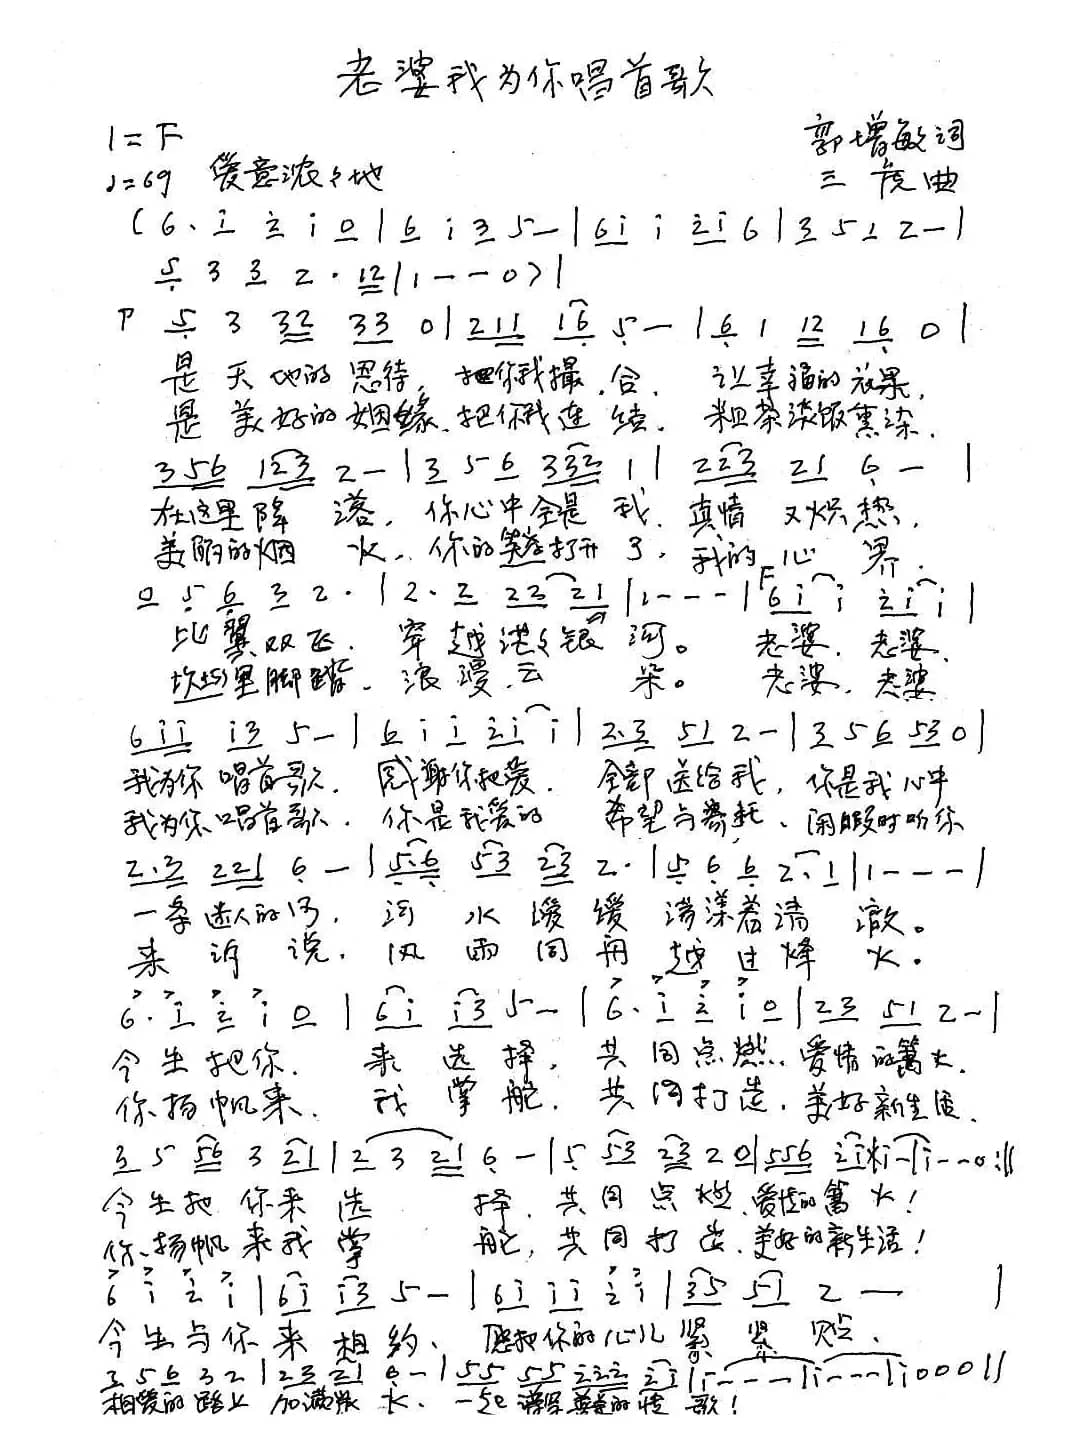 老婆我为你唱首歌
1=F 郭增敏词
♩=69 爱意浓々地 三虎曲
(6·i 2 i 0|6 i 3 5—|6i i 2i 6|3 5 1 2—|
5 3 3 2·12|1---0)|
P 5 3 32 33 0|211 16 5—|6 1 12 16 0|
是天地的恩待，把你我撮合. 让幸福的效果，
是美好的姻缘、把你我连续. 粗茶淡饭熏染.
356 123 2—|3 5 6 332 1| 223 21 6— |
在这里降落，你心中全是我、真情又炽热，
美丽的烟火，你的笑打开了，我的心界.
0 5 6 3 2·|2·2 23 21|1---|F 6i i 2i i|
比翼双飞. 穿越浩々银河。老婆. 老婆.
坎坷里脚踏. 浪漫云朵。老婆. 老婆
6ii i3 5—|6 i i 2i i|2·3 51 2—|3 5 6 53 0|
我为你唱首歌. 感谢你把爱. 全部送给我，你是我心中
我为你唱首歌. 你是我爱的希望与寄托、闲暇时听你
2·3 221 6—|5·6 53 23 2·|5 6 6 2·1|1---|
一条迷人的河，河水缓缓荡漾着清澈。
来诉说. 风雨同舟越过烽火。
6·i 2 i 0|6i i3 5—|6·i 2 i 0|23 51 2—|
今生把你. 来选择，共同点燃爱情的篝火.
你扬帆来. 我掌舵. 共同打造. 美好新生活.
3 5 56 3 21|2 3 21 6—|5 53 23 2 0|556 2i i—|i--0:||
今生把你来选择. 共同点燃. 爱情的篝火!
你扬帆来我掌舵，共同打造. 美好的新生活!
6 i 2 i|6i i3 5—|6i i i 2 i|35 51 2— |
今生与你来相约、愿把你的心儿紧紧贴.
3 5 6 3 2|23 21 6—|55 55 222 2i|i---|i---|i000||
相爱的路上加满浆水、一起谱写美的情歌!